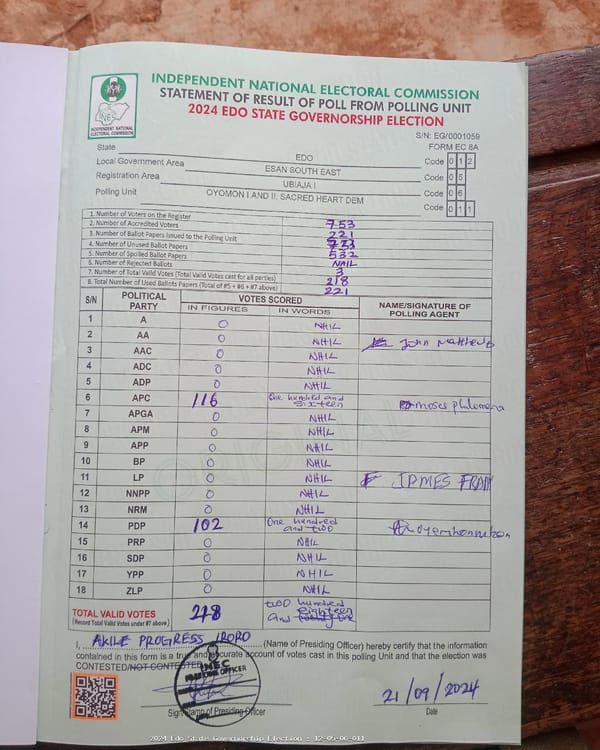 INDEPENDENT NATIONAL ELECTORAL COMMISSION
STATEMENT OF RESULT OF POLL FROM POLLING UNIT
2024 EDO STATE GOVERNORSHIP ELECTION
INDEPENDENT NATIONAL ELECTORAL COMMISSION
S/N: EG/0001059
FORM EC 8A
State EDO Code 0 1 2
Local Government Area ESAN SOUTH EAST Code 0 5
Registration Area UBIAJA I Code 0 6
Polling Unit OYOMON I AND II. SACRED HEART DEM Code 0 1 1
1. Number of Voters on the Register 753
2. Number of Accredited Voters 221
3. Number of Ballot Papers Issued to the Polling Unit 753
4. Number of Unused Ballot Papers 532
5. Number of Spoiled Ballot Papers NAIL
6. Number of Rejected Ballots 3
7. Number of Total Valid Votes (Total Valid Votes cast for all parties) 218
8. Total Number of Used Ballots Papers (Total of #5 + #6 + #7 above) 221
S/N POLITICAL PARTY VOTES SCORED NAME/SIGNATURE OF POLLING AGENT
IN FIGURES IN WORDS
1 A 0 NHIL
2 AA 0 NHIL John Matthew
3 AAC 0 NHIL
4 ADC 0 NHIL
5 ADP 0 NHIL
6 APC 116 One hundred and sixteen moses philomena
7 APGA 0 NHIL
8 APM 0 NHIL
9 APP 0 NHIL
10 BP 0 NHIL
11 LP 0 NHIL JAMES FRANK
12 NNPP 0 NHIL
13 NRM 0 NHIL
14 PDP 102 One hundred and two
15 PRP 0 NHIL
16 SDP 0 NHIL
17 YPP 0 NHIL
18 ZLP 0 NHIL
TOTAL VALID VOTES 218 two hundred and eighteen
(Record Total Valid Votes under #7 above)
I, AKILE PROGRESS IRORO (Name of Presiding Officer) hereby certify that the information
contained in this form is a true and accurate account of votes cast in this polling Unit and that the election was
CONTESTED/NOT CONTESTED
INEC
PRESIDING OFFICER
Sign/Stamp of Presiding Officer
21/09/2024
Date
2024 Edo State Governorship Election : 12-05-06-011